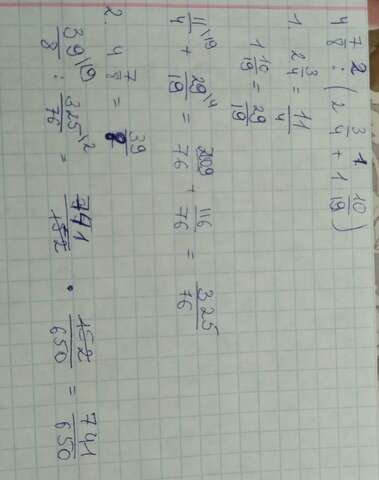 4 7/8 : (2 3/4 + 1 10/19)
2 1
1. 2 3/4 = 11/4
1 10/19 = 29/19
11/4 \19 + 29/19 \4 = 209/76 + 116/76 = 325/76
2. 4 7/8 = 39/8
39/8 \19 : 325/76 \2 = 741/152 · 152/650 = 741/650